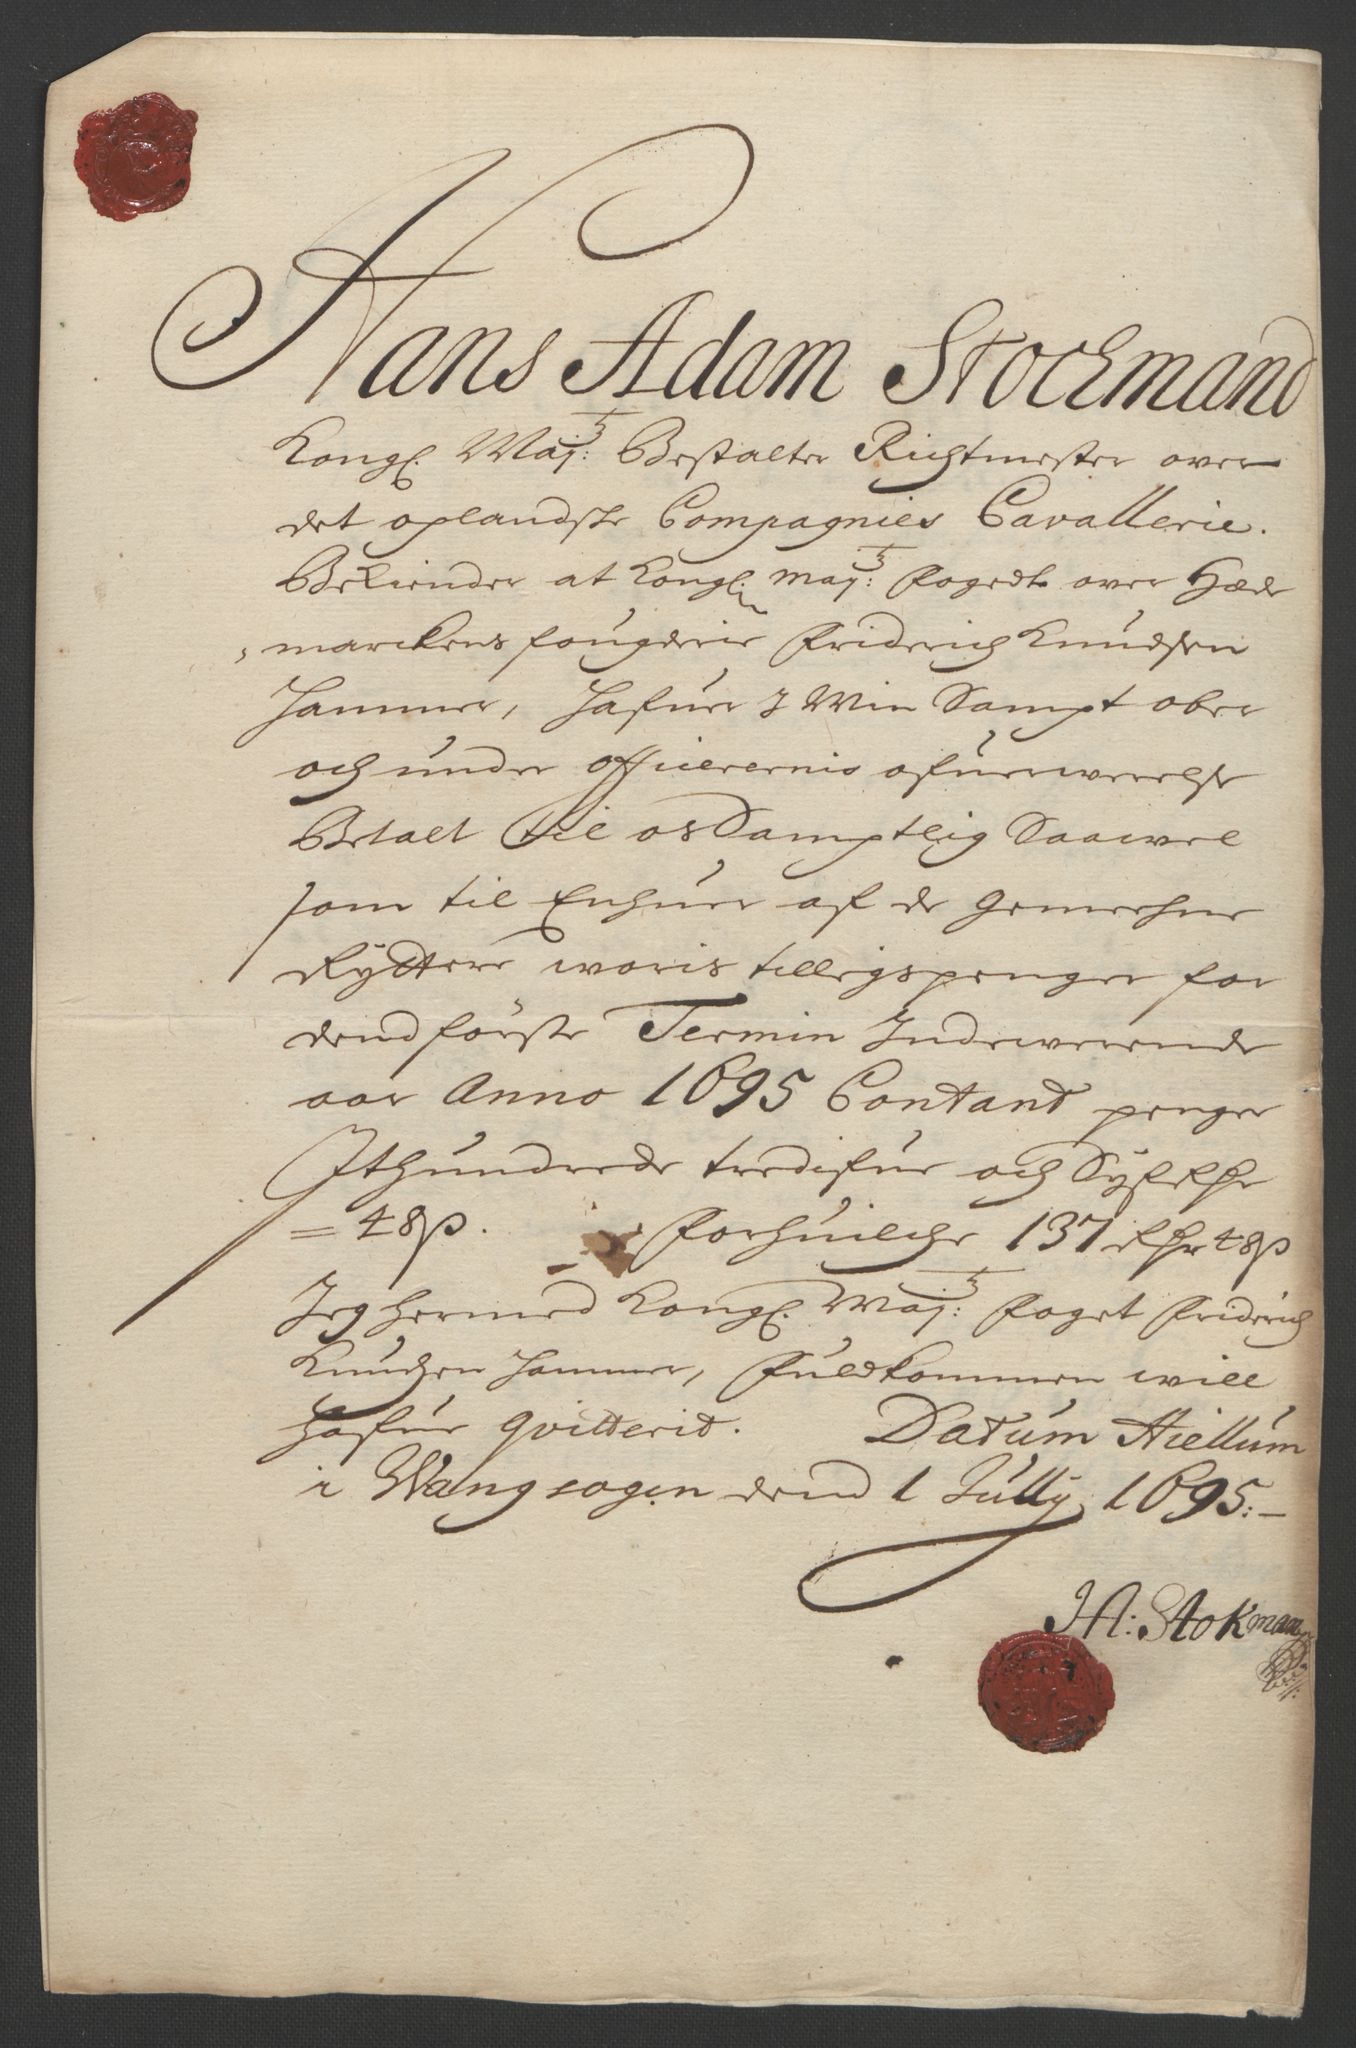 Hans Adam Stockmand
Kongl. Maj:ts Bestalter Richtmester over
det oplandske Compagnies Cavallerie.
Bekiender at Kongl. Maj:ts fogedt over Hede
marckens fougderie Friderich Knudsen
Hammer, hafuer I Min Sampt ober
och under officerernis ofuerwerelse
Betalt til os Samptlig Saawel
som til Enhuer af de gemeehne
Rÿttere woris tillegspenger for
dend förste Termin Indeweerende
aar Anno 1695 Contant penger
Ithundrede tredifue och Syf Rdr
= 48 ß. forhuilche 137 Rdr 48 ß
Jeg hermed Kongl. Maj:ts foget Friderich
Knudsen Hammer, fuldkommen will
hafue qvitterit. Datum Hiellum
i Wangsogen dend 1 Jullÿ 1695:-
HA: Stokman